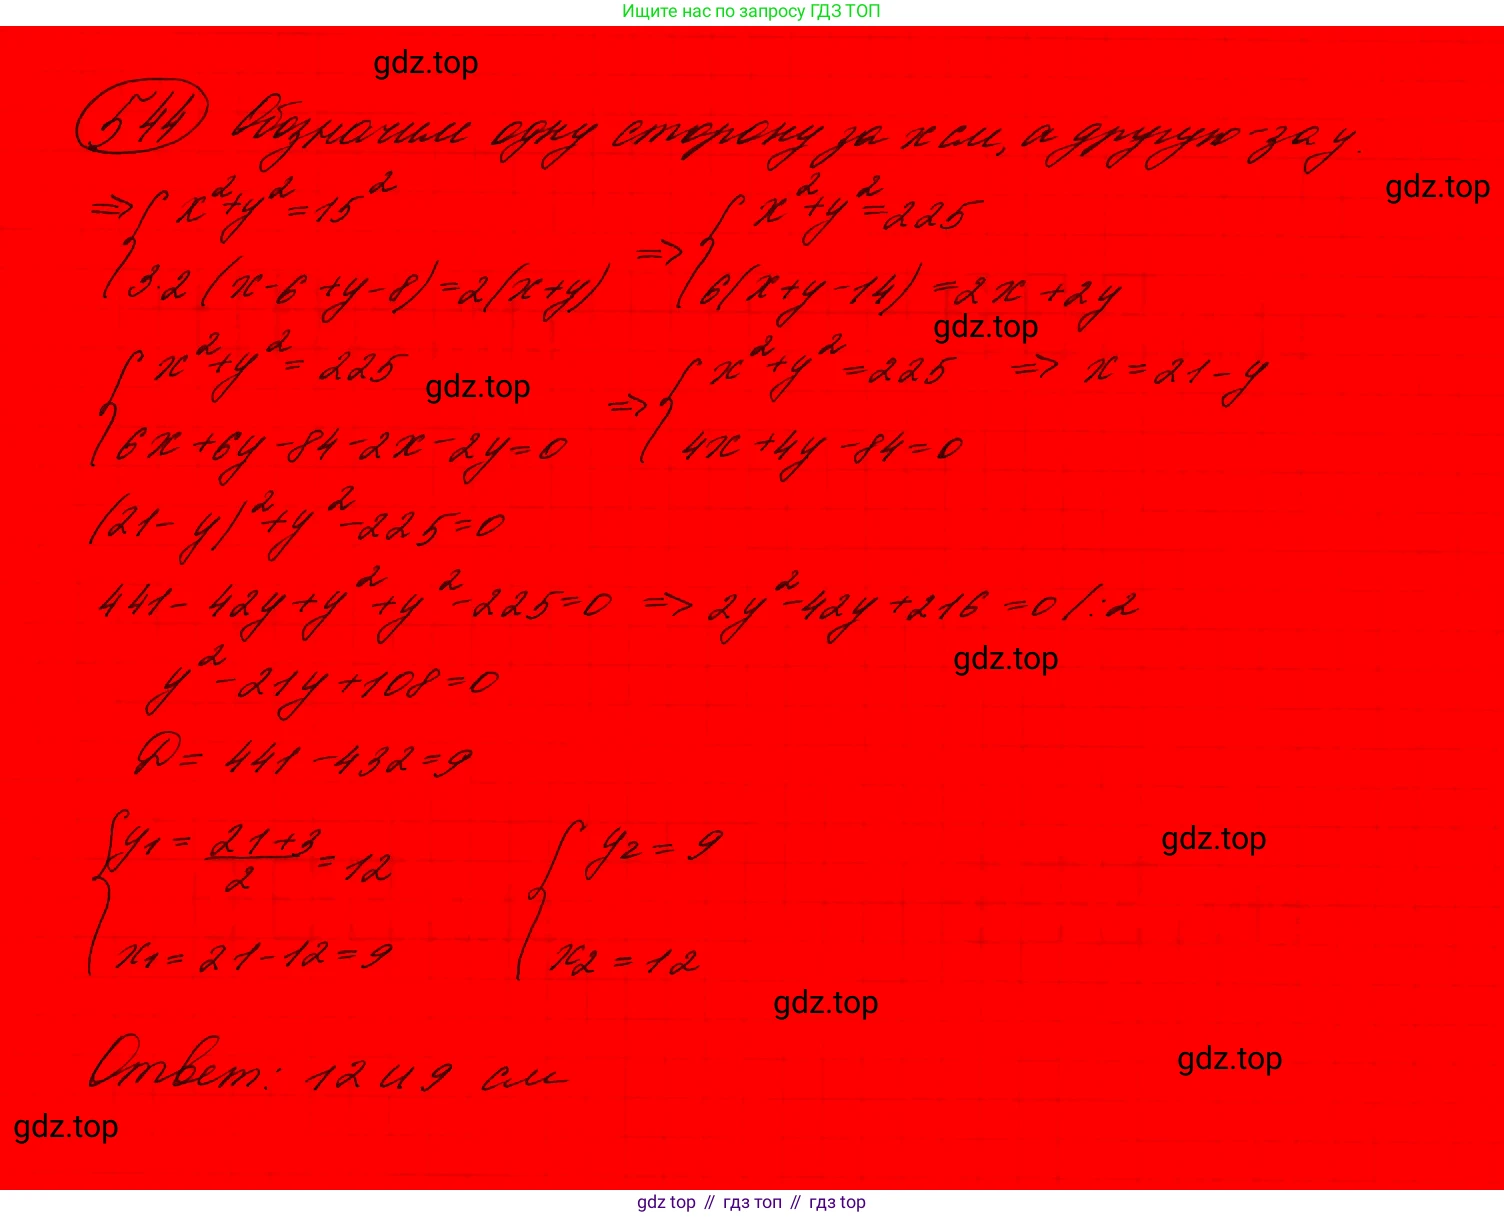 Ищите нас по запросу ГДЗ ТОП
gdz.top
544 Обозначим одну сторону за x см, а другую - за y.
gdz.top
=> { x²+y²=15² => { x²+y²=225
3·2 (x-6+y-8)=2(x+y) 6(x+y-14)=2x+2y
gdz.top
{ x²+y²=225 gdz.top => { x²+y²=225 => x=21-y
6x+6y-84-2x-2y=0 4x+4y-84=0
(21-y)²+y²-225=0
441-42y+y²+y²-225=0 => 2y²-42y+216=0 /:2
gdz.top
y²-21y+108=0
D=441-432=9
gdz.top
{ y₁=(21+3)/2=12 { y₂=9
x₁=21-12=9 x₂=12
gdz.top
gdz.top
Ответ: 12 и 9 см
gdz.top
gdz top // гдз топ // гдз top